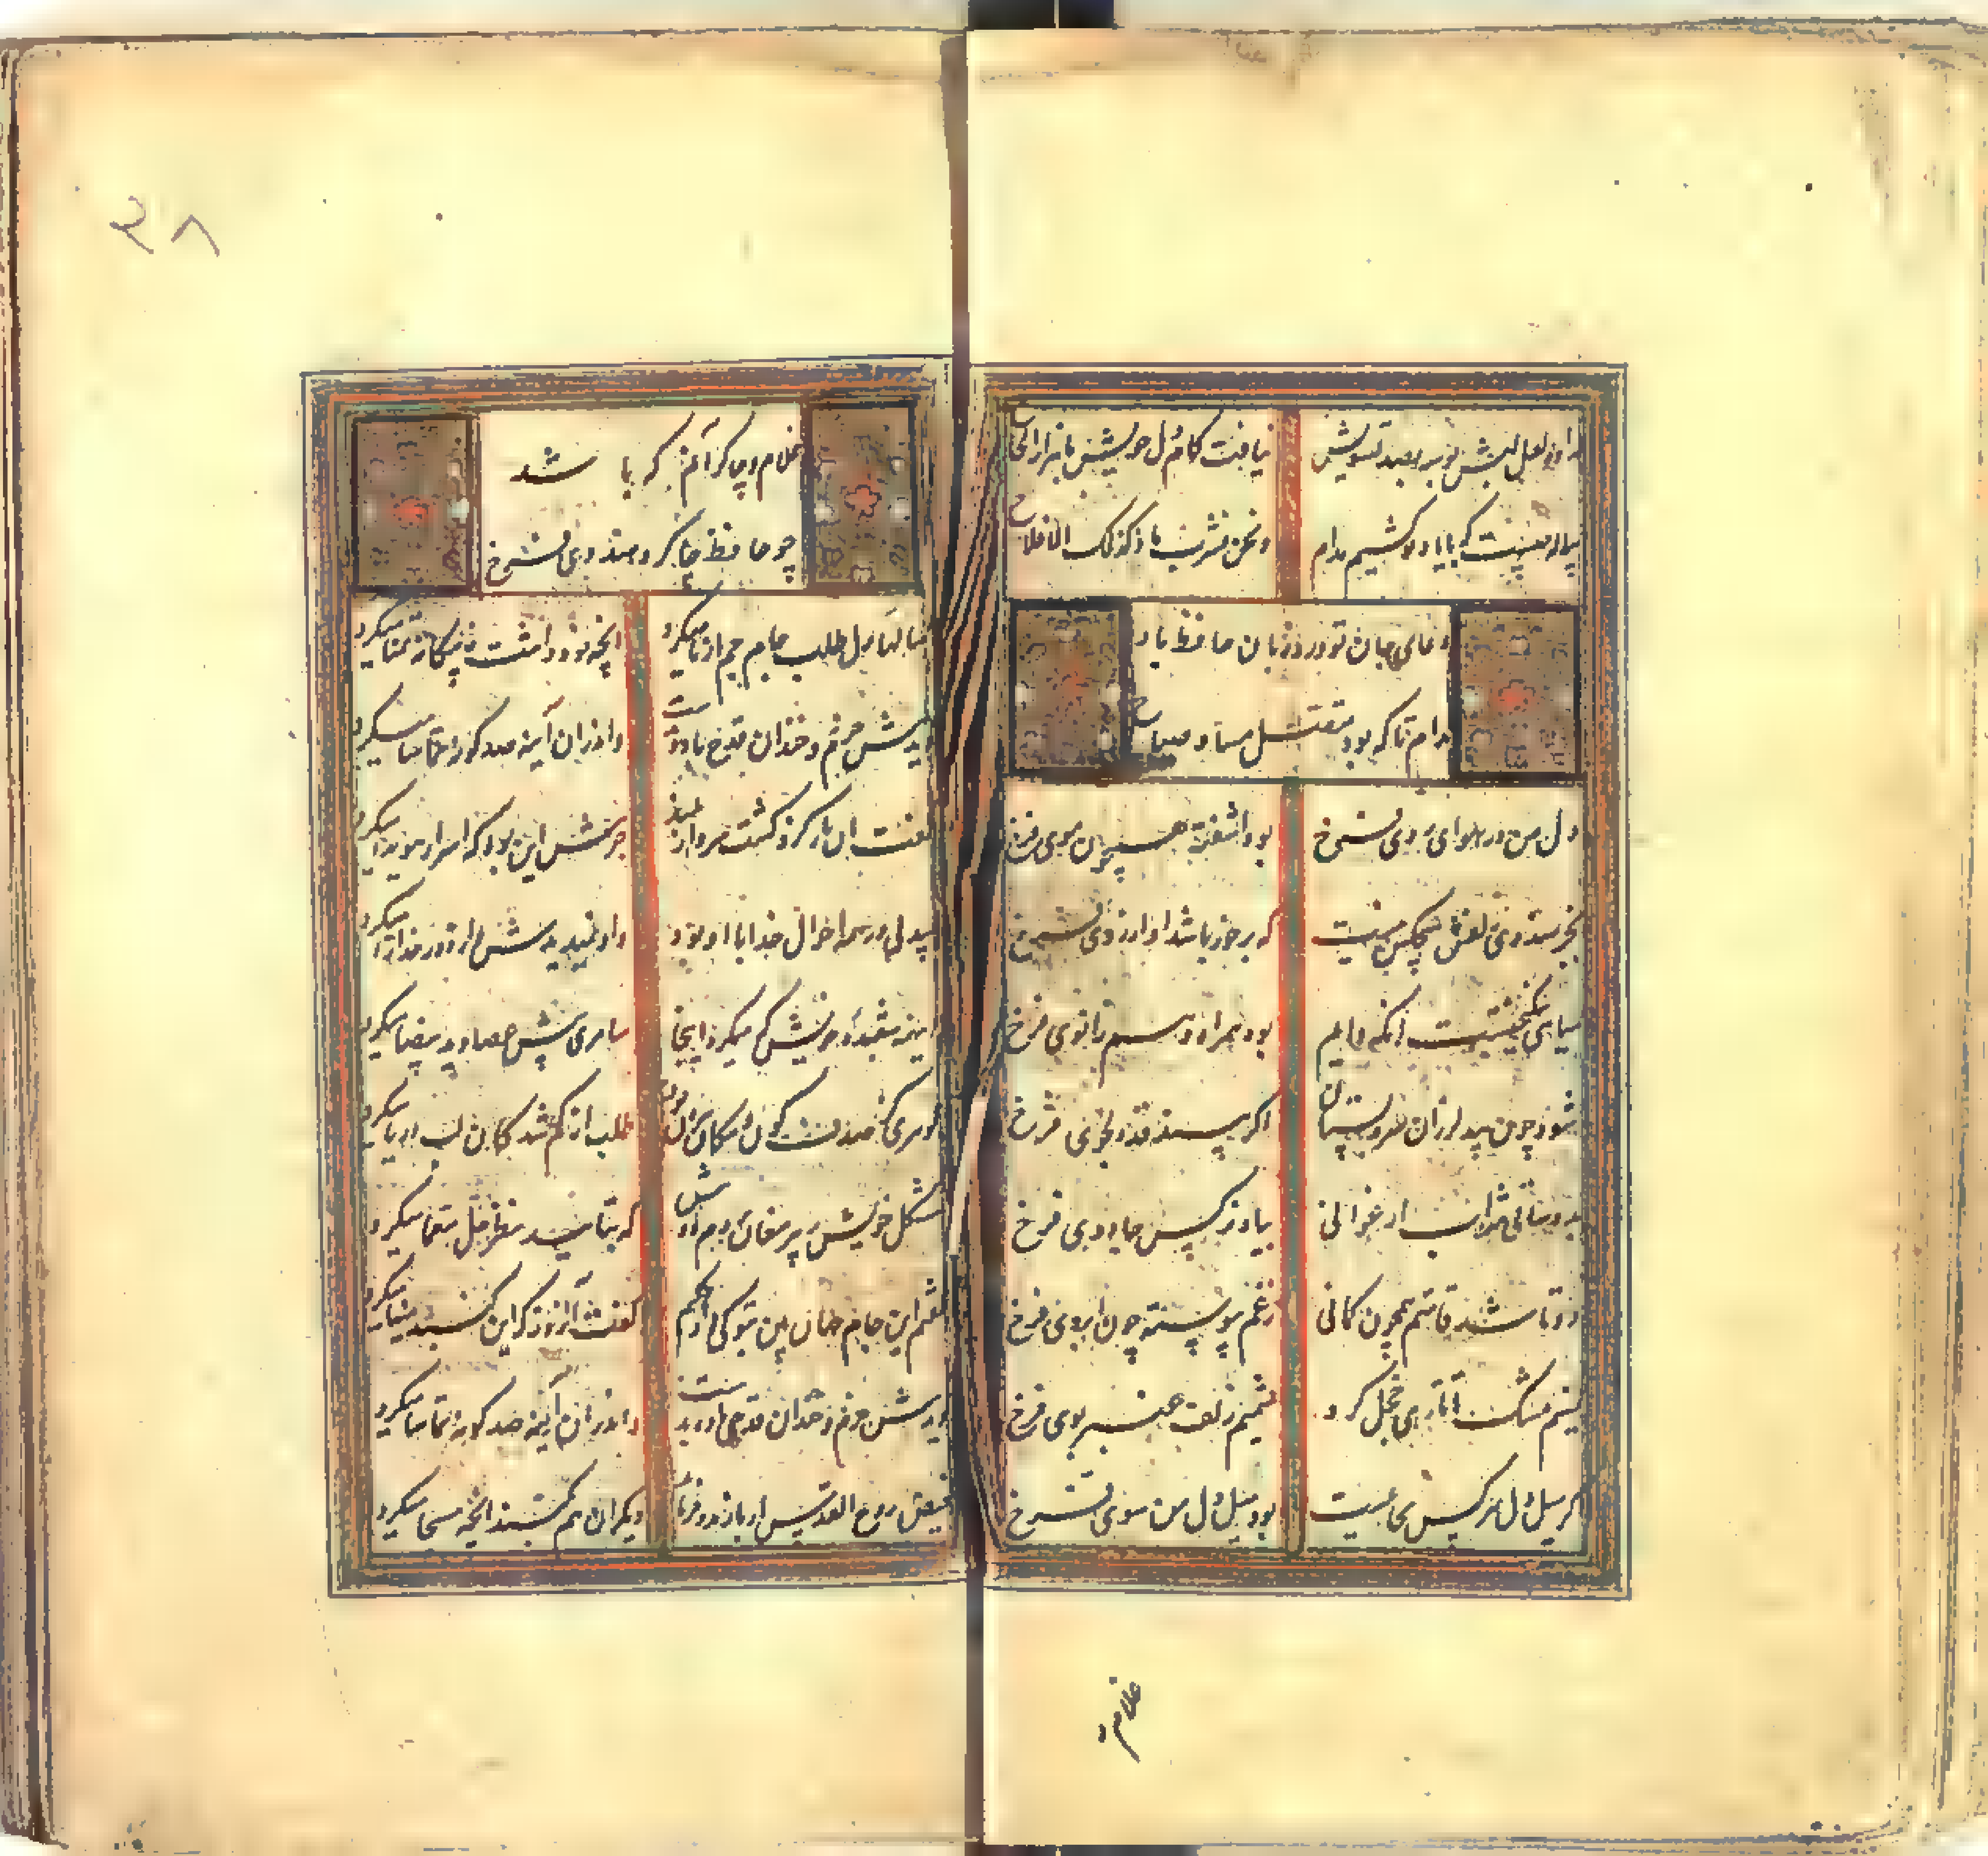 نداد لعل لبش بوسه بصد تلبیس نیافت کام دل خویش با هزار الحاح
پیاله چیست که با یاد تو کشیم مدام و نحن نشرب بذلک الاقداح
دعای جان تو ورد زبان حافظ باد
مدام تا که بود متصل مسا و صباح
دل من در هوای روی فرخ بود آشفته همچون موی فرخ
بجز هندوی زلفش هیچکس نیست که برخوردار باشد از روی فرخ
سیاهی نیکبختست آنکه دایم بود همراه و همزانوی فرخ
شود چون بید لرزان سرو بستان اگر بیند قد دلجوی فرخ
بده ساقی شراب ارغوانی بیاد نرکس جادوی فرخ
دوتا شد قامتم همچون کمانی ز غم پیوسته چون ابروی فرخ
نسیم مشک تاتاری خجل کرد شمیم زلف عنبر بوی فرخ
اگر میل دل هرکس بجاییست بود میل دل من سوی فرخ
غلام و
۲۸
غلام و چاکر آنم که باشد
چو حافظ چاکر هندوی فرخ
سالها دل طلب جام جم از ما میکرد آنچه خود داشت ز بیکانه تمنا میکرد
دیدمش خرم و خندان قدح باده بدست و اندران آینه صد کونه تماشا میکرد
گفت آن یار کزو گشت سر دار بلند جرمش این بود که اسرار هویدا میکرد
بیدلی در همه احوال خدا با او بود و او نمیدیدش و از دور خدایا میکرد
اینهمه شعبده خویش که میکرد اینجا سامری پیش عصا و ید بیضا میکرد
گوهری کز صدف کون و مکان بیرون بود طلب از گمشدگان لب دریا میکرد
مشکل خویش بر پیر مغان بردم دوش که بتایید نظر حل معما میکرد
گفتم این جام جهان بین بتو کی داد حکیم گفت آنروز که این گنبد مینا میکرد
دیدمش خرم و خندان قدح باده بدست و اندران آینه صد کونه تماشا میکرد
فیض روح القدس ار باز مدد فرماید دیکران هم بکنند آنچه مسیحا میکرد